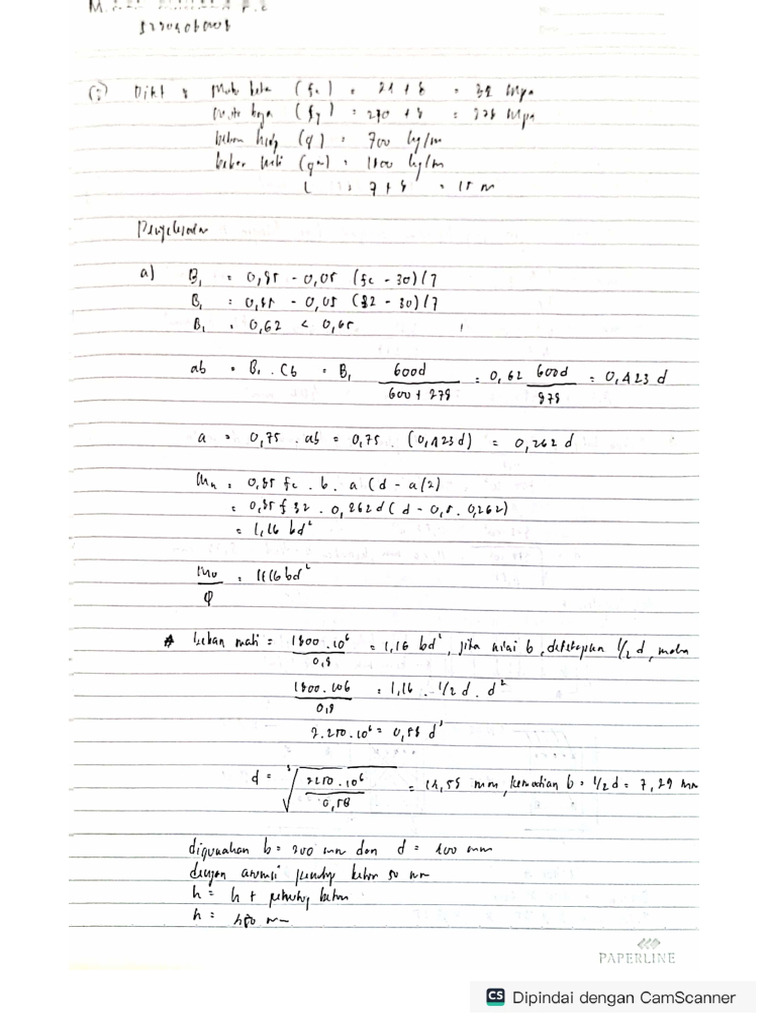 (:) Dikt : Mutu beton (fc) = 24 + 8 = 32 Mpa
Mutu baja (fy) = 270 + 8 = 278 Mpa
beban hidup (q) = 700 kg/m
beban mati (qm) = 1800 kg/m
L = 7 + 8 = 15 m
Penyelesaian
a) B₁ = 0,85 - 0,05 (fc - 30)/7
B₁ = 0,85 - 0,05 (32 - 30)/7
B₁ = 0,62 < 0,65
ab = B₁ . Cb = B₁ 600d / 600 + 278 = 0,62 600d / 878 = 0,423 d
a = 0,75 . ab = 0,75 . (0,423d) = 0,262 d
Mn = 0,85 fc . b . a (d - a/2)
= 0,85 f 32 . 0,262d (d - 0,5 . 0,262)
= 1,16 bd²
Mu / φ = 1,16 bd²
* beban mati = 1800.10⁶ / 0,8 = 1,16 bd², jika nilai b ditetapkan 1/2 d, maka
1800.106 / 0,8 = 1,16 . 1/2 d . d²
2.250.10⁶ = 0,58 d³
d = ³√ 2250.10⁶ / 0,58 = mm, kemudian b = 1/2 d = 7,29 mm
digunakan b = 200 mm dan d = 400 mm
dengan asumsi penutup beton 50 mm
h = h + penutup beton
h = 450 mm
PAPERLINE
CS Dipindai dengan CamScanner